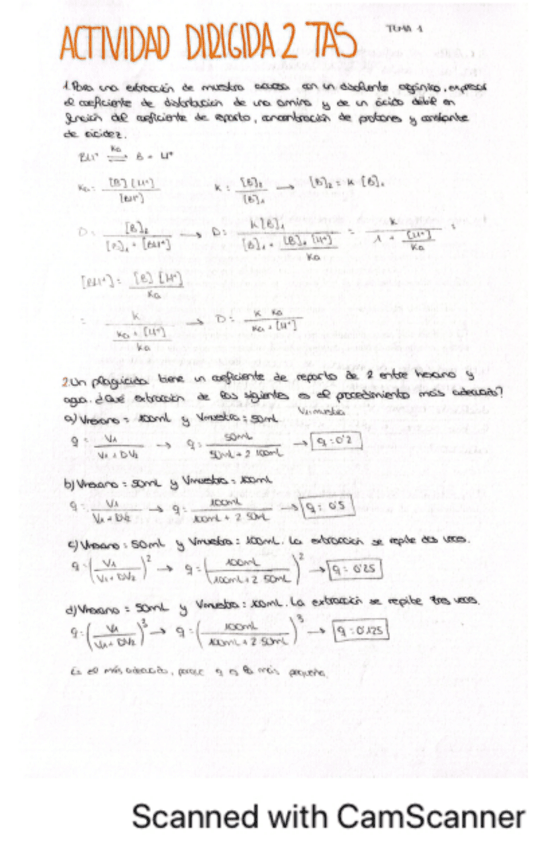 ACTIVIDAD DIRIGIDA 2 TAS TEMA 1
1. Para una extracción de muestra acuosa con un disolvente orgánico, expresar
el coeficiente de distribución de una amina y de un ácido débil en
función del coeficiente de reparto, concentración de protones y constante
de acidez.
BH⁺ ⇌ (Ka) B + H⁺
Ka = [B][H⁺] / [BH⁺] K = [B]₂ / [B]₁ → [B]₂ = K [B]₁
D = [B]₂ / ([B]₁ + [BH⁺]) → D = K[B]₁ / ([B]₁ + [B]₁[H⁺] / Ka) = K / (1 + [H⁺] / Ka) =
[BH⁺] = [B][H⁺] / Ka
= K / ((Ka + [H⁺]) / Ka) → D = K Ka / (Ka + [H⁺])
2. Un plaguicida tiene un coeficiente de reparto de 2 entre hexano y
agua. ¿Qué extracción de las siguientes es el procedimiento más adecuado?
a) Vhexano = 100mL y Vmuestra = 50mL V1: muestra
q = V1 / (V1 + DV2) → q = 50mL / (50mL + 2 100mL) → q = 0'2
b) Vhexano = 50mL y Vmuestra = 100mL
q = V1 / (V1 + DV2) → q = 100mL / (100mL + 2 50mL) → q = 0'5
c) Vhexano = 50mL y Vmuestra = 100mL. La extracción se repite dos veces.
q = (V1 / (V1 + DV2))² → q = (100mL / (100mL + 2 50mL))² → q = 0'25
d) Vhexano = 50mL y Vmuestra = 100mL. La extracción se repite tres veces.
q = (V1 / (V1 + DV2))³ → q = (100mL / (100mL + 2 50mL))³ → q = 0'125
Es el más adecuado, porque q es la más pequeña.
Scanned with CamScanner